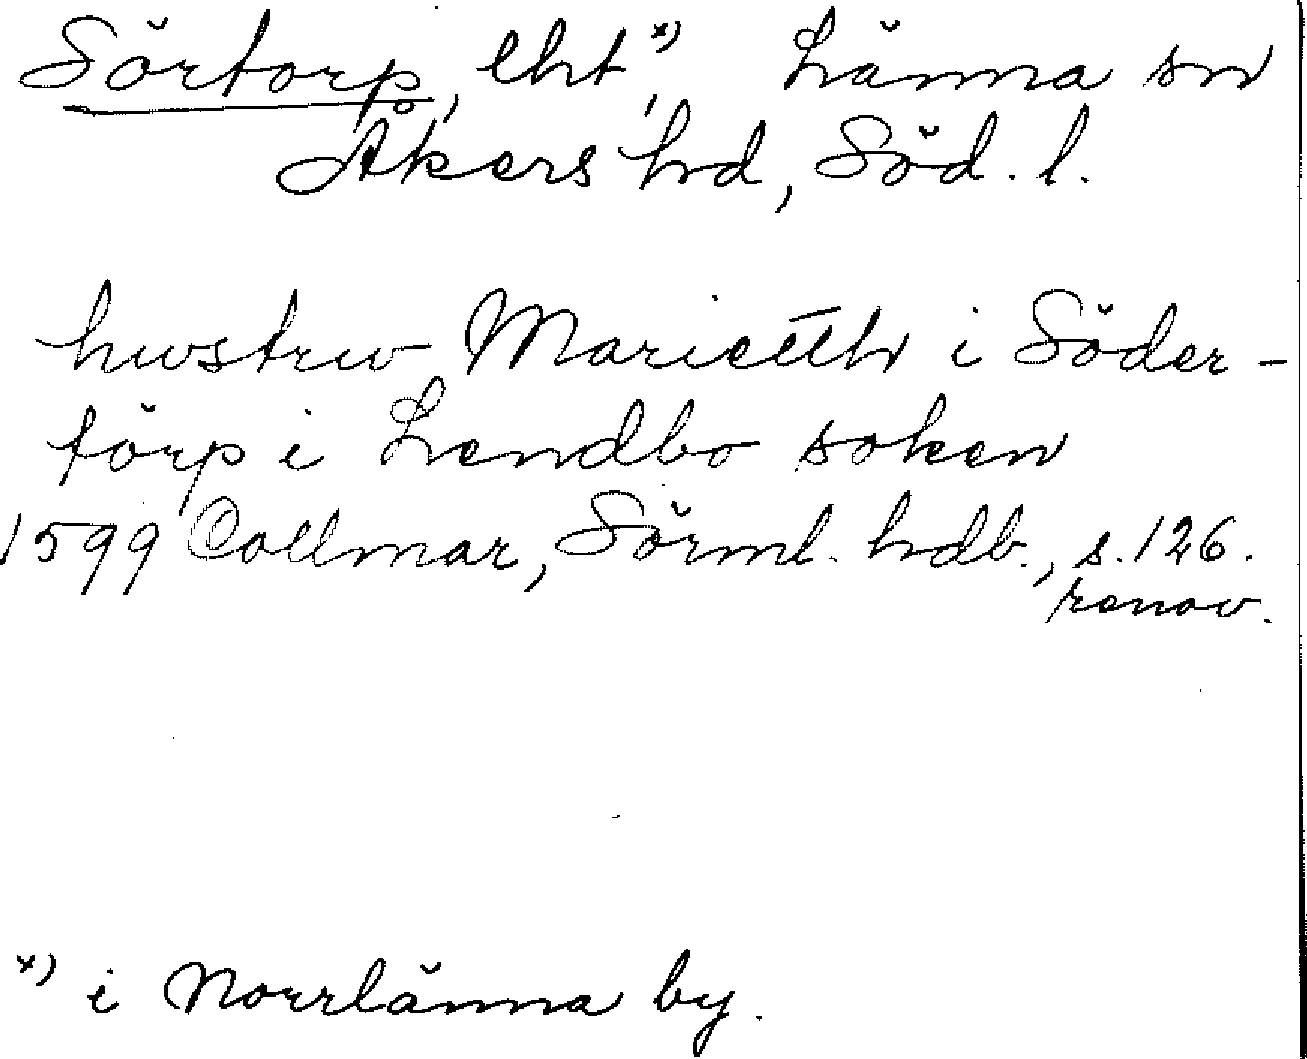 Sörtorp, lht,ˣ⁾ Länna sn
Åkers hd, Söd. l.
hustru Marietth i Söder-
törp i Lendbo soken
1599 Collmar, Sörml. hdb., s. 126.
renov.
ˣ⁾ i Norrlänna by.